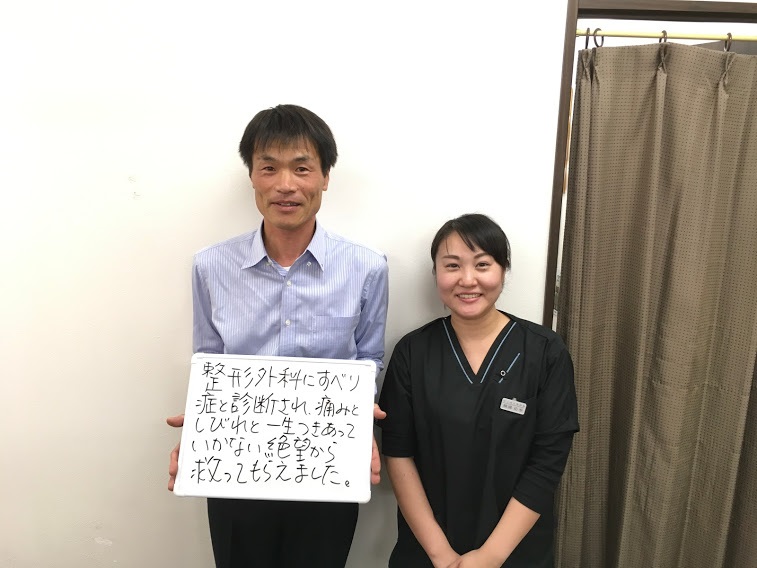 整形外科にすべり
症と診断され、痛みと
しびれと一生つきあって
いかない絶望から
救ってもらえました。